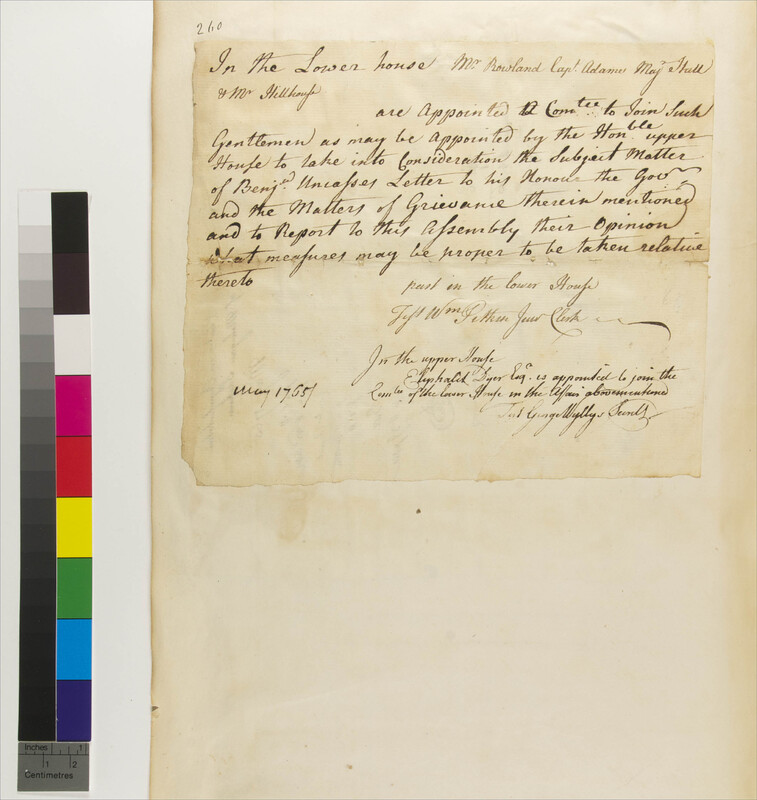 260
In the Lower house Mr Rowland Capt. Adams Majr Hull
& Mr Hillhouse
are Appointed a Comtee to Join Such
Gentlemen as may be Appointed by the Honble upper
House to take into Consideration the Subject Matter
of Benjn. Uncasses Letter to his Honour the Govr
and the Matters of Grievance therein mentioned
and to Report to this Assembly their Opinion
what measures may be proper to be taken relative
thereto
past in the lower House
Test Wm Pitkin Junr Clerk
In the upper House
Eliphalit Dyer Esqr. is appointed to join the
May 1765/
Comtee. of the lower House in the Affair abovementioned
Test George Wyllys Secrety
Inches 1
1 2
Centimetres